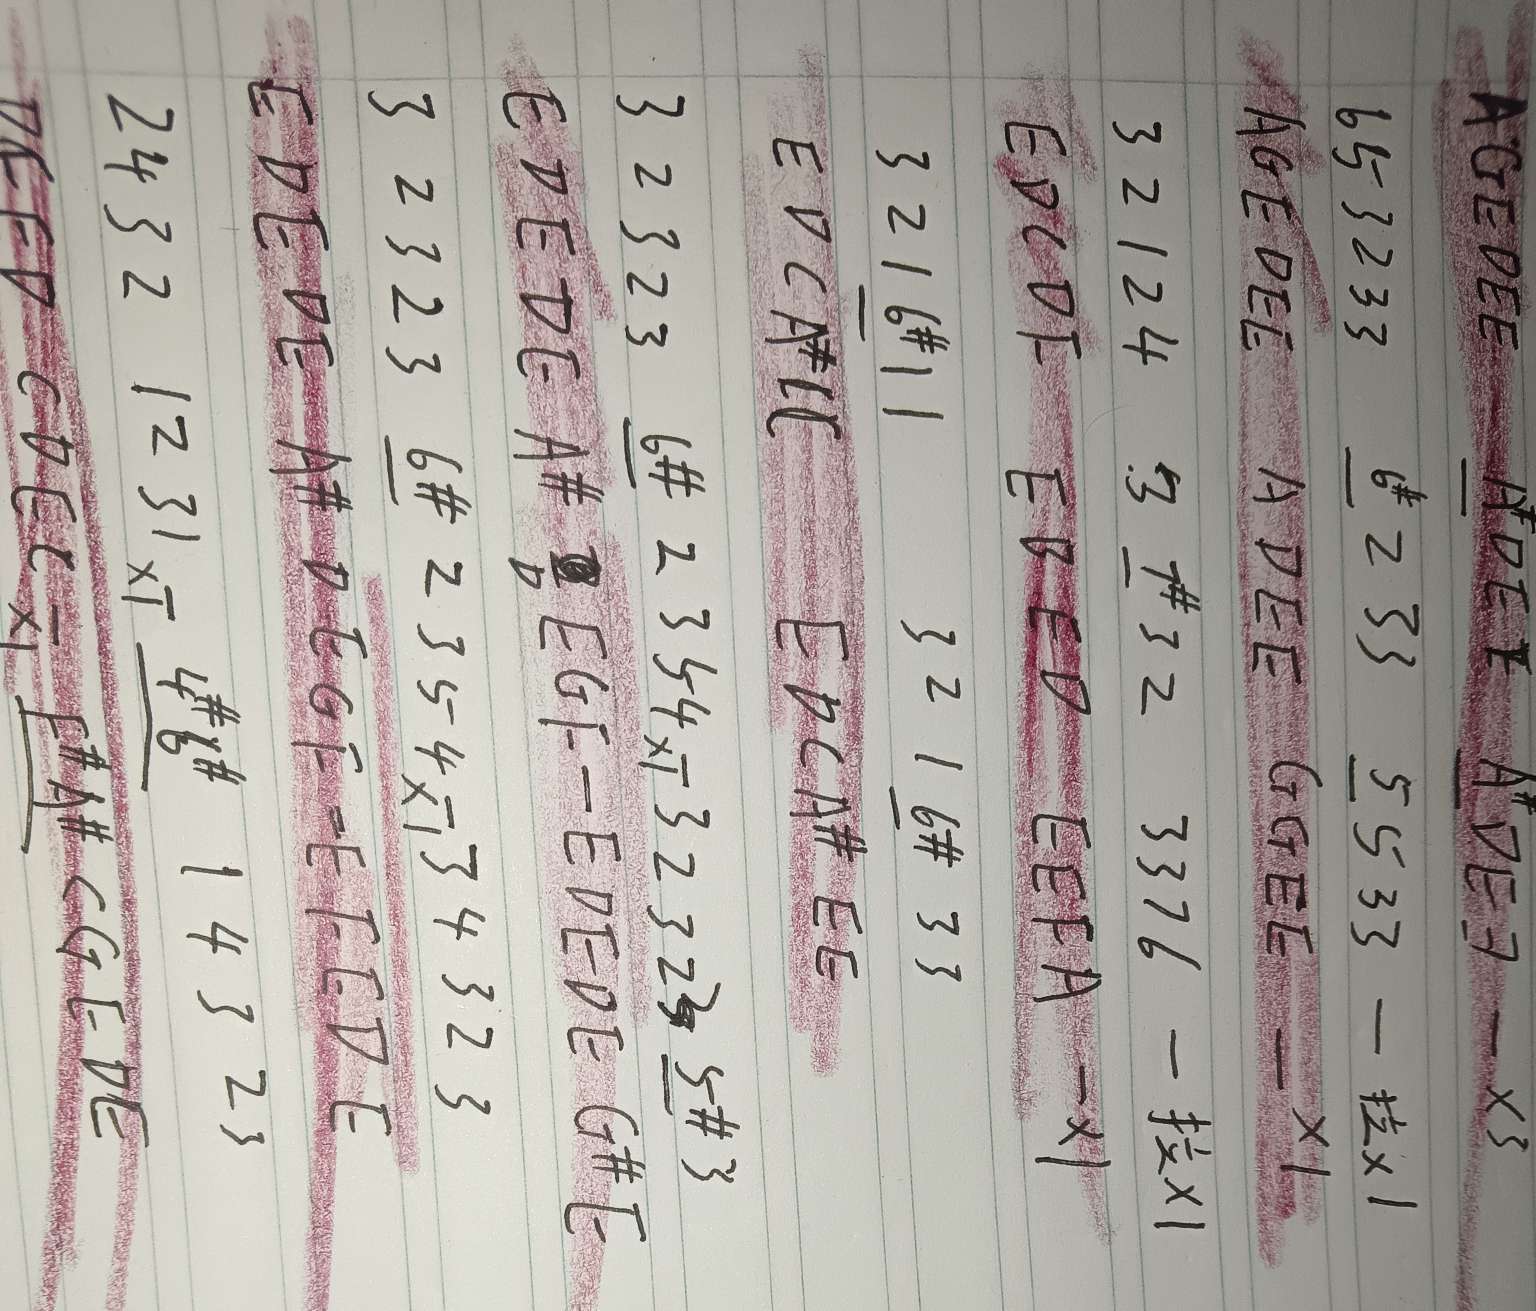 AGEDEE A#DEE A#DEE — x3
653233 6#233 5533 — 拉x1
AGEDEE ADEE GGEE — x1
32124 3 7#32 3376 — 拉x1
EDCDF EBED EEFA — x1
3216#11 3216#33
EDCA#CC EDCA#EE
32323 6# 2 354x1 — 32323 5#3
EDEDE A# D EGF — EDEDE G#E
32323 6# 2354x1 — 34323
EDEDE A# DEGF — EFEDE
2432 1231x1 — 4#6# 1 4 3 23
DFED CDEC — x1 F#A# CGEDE